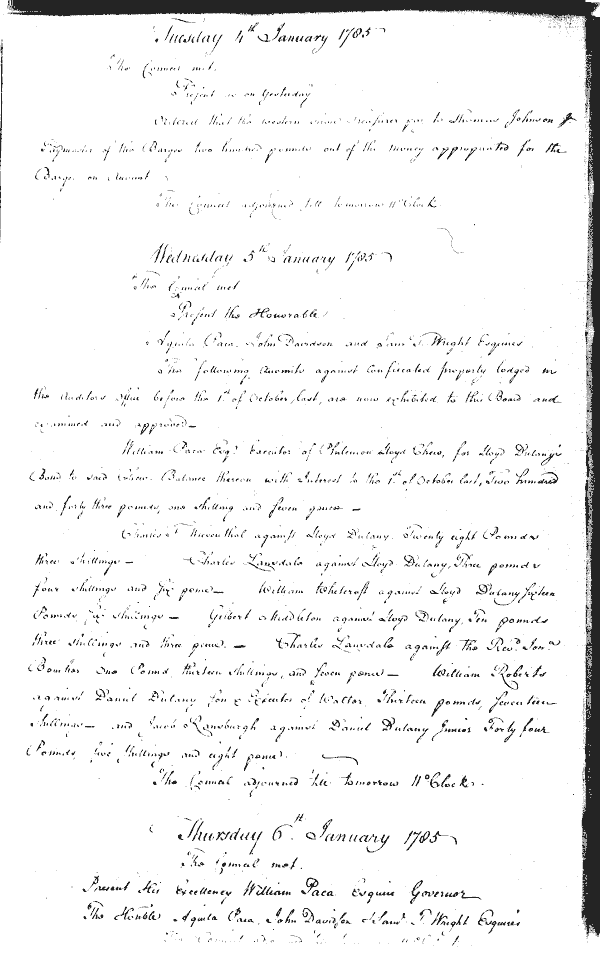 Tuesday 4th January 1785
The Council met.
Present as on Yesterday
Ordered that the western shore Treasurer pay to Thomas Johnson Jr
Paymaster of the Barges two hundred pounds out of the money appropriated for the
Barges on Account
The Council adjourned till tomorrow 11 oClock.
Wednesday 5th January 1785
The Council met
Present the Honorable
Aquila Paca, John Davidson and Saml. T. Wright Esquires
The following Accounts against confiscated property lodged in
the Auditors office before the 1st of October last, are now exhibited to this Board and
examined and approved—
William Paca Esqr. Executor of Philemon Lloyd Chew, for Lloyd Dulany's
Bond to said Chew. Balance thereon with Interest to the 1st of October last, Two hundred
and forty three pounds, one shilling and seven pence —
Charles T against Lloyd Dulany. Twenty eight Pounds
three shillings — Charles Lansdale against Lloyd Dulany, Three pounds
four shillings and six pence — William Whetcroft against Lloyd Dulany sixteen
Pounds six shillings — Gilbert Middleton against Lloyd Dulany, Ten pounds
three shillings and three pence. — Charles Lansdale against the Revd. Jonn.
Boucher One Pound, thirteen shillings, and seven pence — William Roberts
against Daniel Dulany son & Executor of Walter, Thirteen pounds, seventeen
shillings — and Jacob against Daniel Dulany Junior Forty four
Pounds, five shillings and eight pence.
The Council adjourned till tomorrow 11 oClock.
Thursday 6th January 1785
The Council met.
Present His Excellency William Paca Esquire Governor
The Honble Aquila Paca, John Davidson & Saml. T. Wright Esquires
The Council adjourned till tomorrow 11 oClock